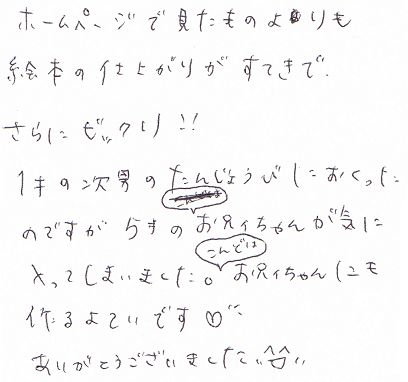 ホームページで見たものよりも
絵本の仕上がりがすてきで
さらにビックリ!!
1才の次男のたんじょうびにおくった
のですが 5才のお兄ちゃんが気に
入ってしまいました。こんどは お兄ちゃんにも
作るよていです♡
ありがとうございました